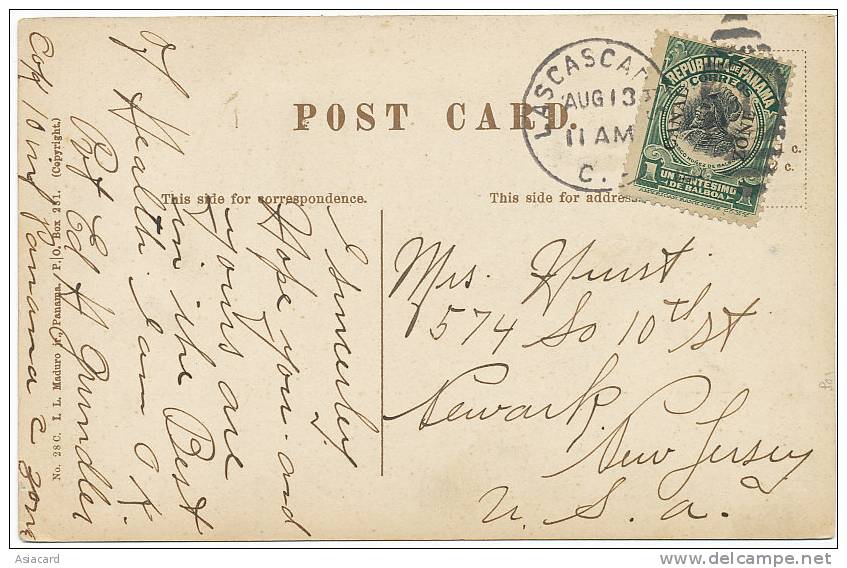 POST CARD.
LAS CASCADAS
AUG 13
11 AM
C.
REPUBLICA DE PANAMA
CORREOS
CANAL ZONE
VASCO NUÑEZ DE BALBOA
1 UN CENTESIMO 1
DE BALBOA
c.
c.
This side for correspondence.
This side for address.
Hope you and
yours are
in the Best
of Health I am OK.
Sincerley
Pvt Ed H Grundler
Co 10 inf Panama C zone
No. 28 C. I. L. Maduro jr., Panama. P. O. Box 281. (Copyright.)
Mrs. Hurst
574 So 10th St
Newark
New Jersey
U. S. a.
Asiacard
delcampe.net